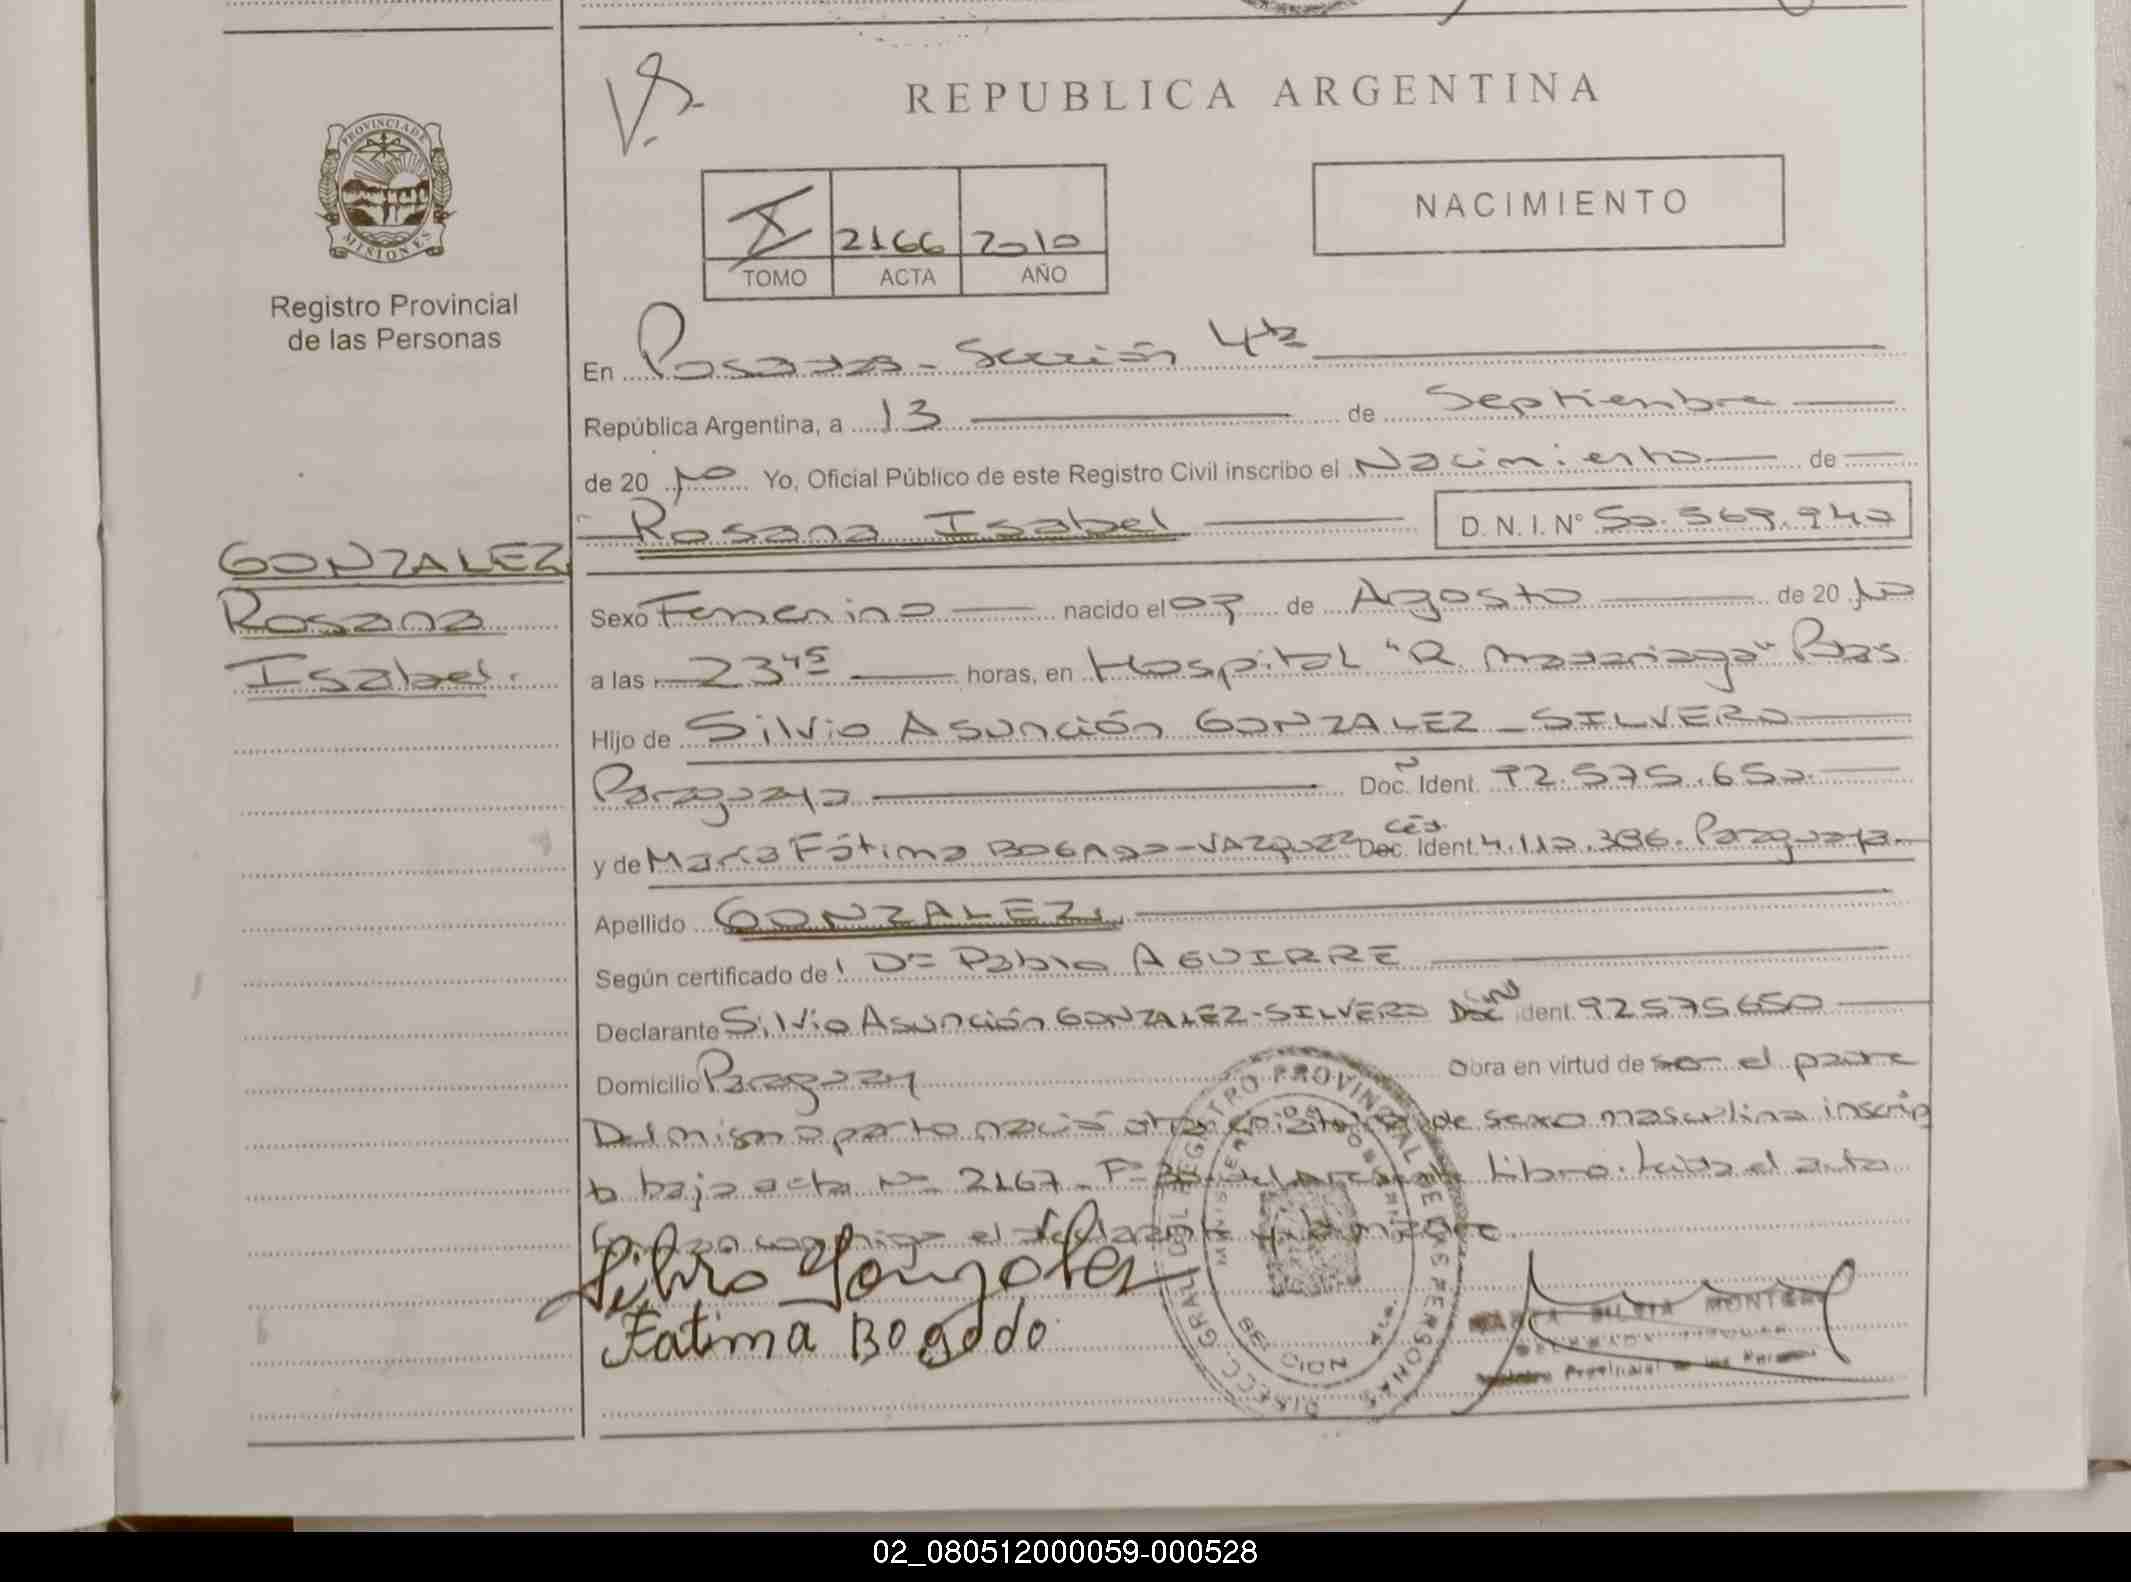 REPUBLICA ARGENTINA
PROVINCIA DE
MISIONES
Registro Provincial
de las Personas
X 2166 2010
TOMO ACTA AÑO
NACIMIENTO
En Posadas - Sección 4ta
República Argentina, a 13 de Septiembre
de 20 10 Yo, Oficial Público de este Registro Civil inscribo el Nacimiento de
Rosana Isabel D. N. I. Nº 50.369.940
GONZALEZ
Rosana
Isabel.
Sexo Femenino nacido el 07 de Agosto de 20 10
a las 23 45 horas, en Hospital "R. Madariaga" Pdas
Hijo de Silvio Asunción GONZALEZ - SILVERO
Paraguaya Doc. Ident. 92.575.650
y de María Fátima BOGADO - VAZQUEZ Doc. Ident. 4.110.386. Paraguaya
Apellido GONZALEZ.
Según certificado de Dr Pablo AGUIRRE
Declarante Silvio Asunción GONZALEZ - SILVERO Doc Ident. 92575650
Domicilio Paraguay Obra en virtud de ser el padre
Del mismo parto nació de sexo masculino inscrip
to bajo acta Nº 2167 - Fº Libro. Leída el acta
conmigo el declarante y
Silvio Gonzalez
Fatima Bogado
DIRECC. GRAL. DEL REGISTRO PROVINCIAL DE LAS PERSONAS
SILVIA MONTERO
Registro Provincial de las Personas
02_080512000059-000528